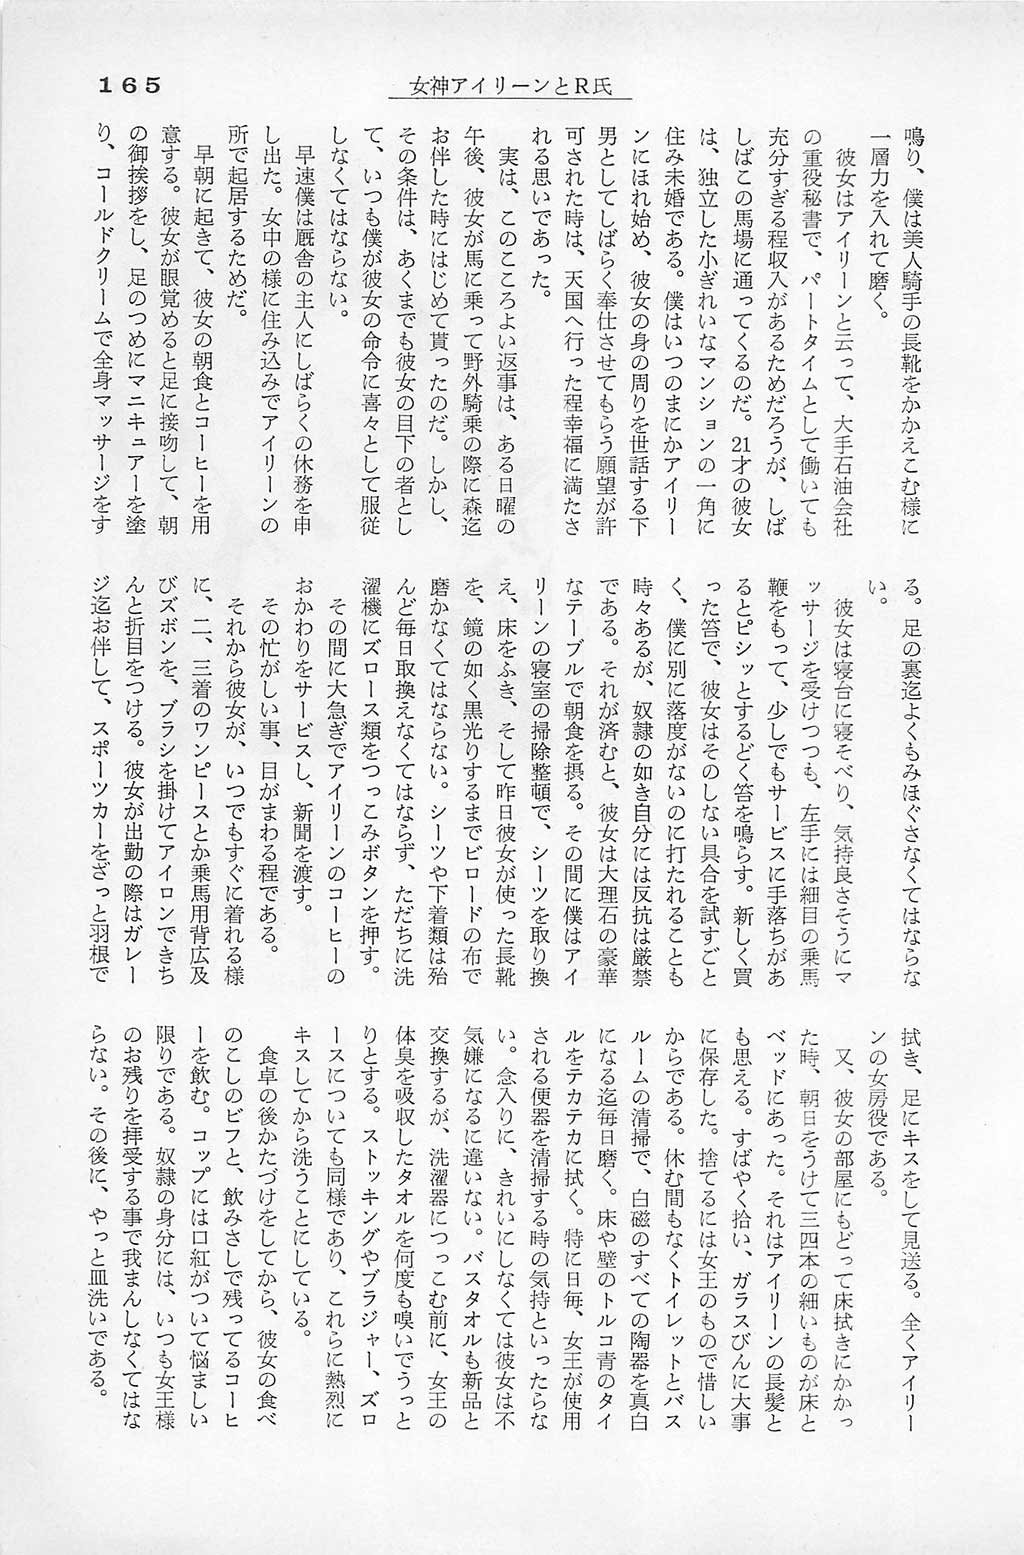 165
女神アイリーンとR氏
鳴り、僕は美人騎手の長靴をかかえこむ様に
一層力を入れて磨く。
彼女はアイリーンと云って、大手石油会社
の重役秘書で、パートタイムとして働いても
充分すぎる程収入があるためだろうが、しば
しばこの馬場に通ってくるのだ。21才の彼女
は、独立した小ぎれいなマンションの一角に
住み未婚である。僕はいつのまにかアイリー
ンにほれ始め、彼女の身の周りを世話する下
男としてしばらく奉仕させてもらう願望が許
可された時は、天国へ行った程幸福に満たさ
れる思いであった。
実は、このこころよい返事は、ある日曜の
午後、彼女が馬に乗って野外騎乗の際に森迄
お伴した時にはじめて貰ったのだ。しかし、
その条件は、あくまでも彼女の目下の者とし
て、いつも僕が彼女の命令に喜々として服従
しなくてはならない。
早速僕は厩舎の主人にしばらくの休務を申
し出た。女中の様に住み込みでアイリーンの
所で起居するためだ。
早朝に起きて、彼女の朝食とコーヒーを用
意する。彼女が眼覚めると足に接吻して、朝
の御挨拶をし、足のつめにマニキュアーを塗
り、コールドクリームで全身マッサージをす
る。足の裏迄よくもみほぐさなくてはならな
い。
彼女は寝台に寝そべり、気持良さそうにマ
ッサージを受けつつも、左手には細目の乗馬
鞭をもって、少しでもサービスに手落ちがあ
るとピシッとするどく笞を鳴らす。新しく買
った笞で、彼女はそのしない具合を試すごと
く、僕に別に落度がないのに打たれることも
時々あるが、奴隷の如き自分には反抗は厳禁
である。それが済むと、彼女は大理石の豪華
なテーブルで朝食を摂る。その間に僕はアイ
リーンの寝室の掃除整頓で、シーツを取り換
え、床をふき、そして昨日彼女が使った長靴
を、鏡の如く黒光りするまでビロードの布で
磨かなくてはならない。シーツや下着類は殆
んど毎日取換えなくてはならず、ただちに洗
濯機にズロース類をつっこみボタンを押す。
その間に大急ぎでアイリーンのコーヒーの
おかわりをサービスし、新聞を渡す。
その忙がしい事、目がまわる程である。
それから彼女が、いつでもすぐに着れる様
に、二、三着のワンピースとか乗馬用背広及
びズボンを、ブラシを掛けてアイロンできち
んと折目をつける。彼女が出勤の際はガレー
ジ迄お伴して、スポーツカーをざっと羽根で
拭き、足にキスをして見送る。全くアイリー
ンの女房役である。
又、彼女の部屋にもどって床拭きにかかっ
た時、朝日をうけて三四本の細いものが床と
ベッドにあった。それはアイリーンの長髪と
も思える。すばやく拾い、ガラスびんに大事
に保存した。捨てるには女王のもので惜しい
からである。休む間もなくトイレットとバス
ルームの清掃で、白磁のすべての陶器を真白
になる迄毎日磨く。床や壁のトルコ青のタイ
ルをテカテカに拭く。特に日毎、女王が使用
される便器を清掃する時の気持といったらな
い。念入りに、きれいにしなくては彼女は不
気嫌になるに違いない。バスタオルも新品と
交換するが、洗濯器につっこむ前に、女王の
体臭を吸収したタオルを何度も嗅いでうっと
りとする。ストッキングやブラジャー、ズロ
ースについても同様であり、これらに熱烈に
キスしてから洗うことにしている。
食卓の後かたづけをしてから、彼女の食べ
のこしのビフと、飲みさしで残ってるコーヒ
ーを飲む。コップには口紅がついて悩ましい
限りである。奴隷の身分には、いつも女王様
のお残りを拝受する事で我まんしなくてはな
らない。その後に、やっと皿洗いである。